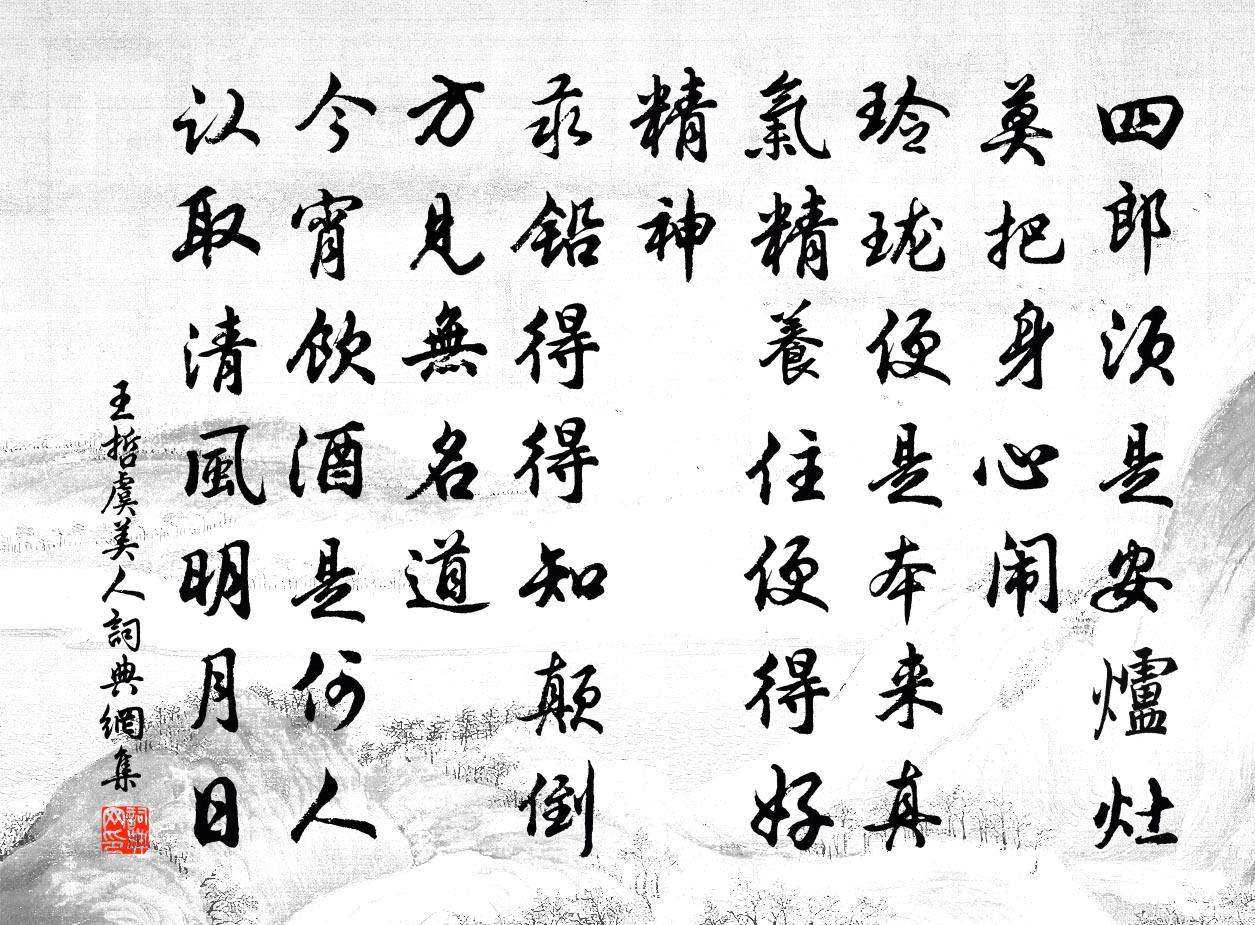 四郎须是安爐灶
莫把身心闹
玲珑便是本来真
氣精養住便得好
精神
汞鉛得得知颠倒
方見無名道
今宵飲酒是何人
认取清風明月日
王哲虞美人詞典網集